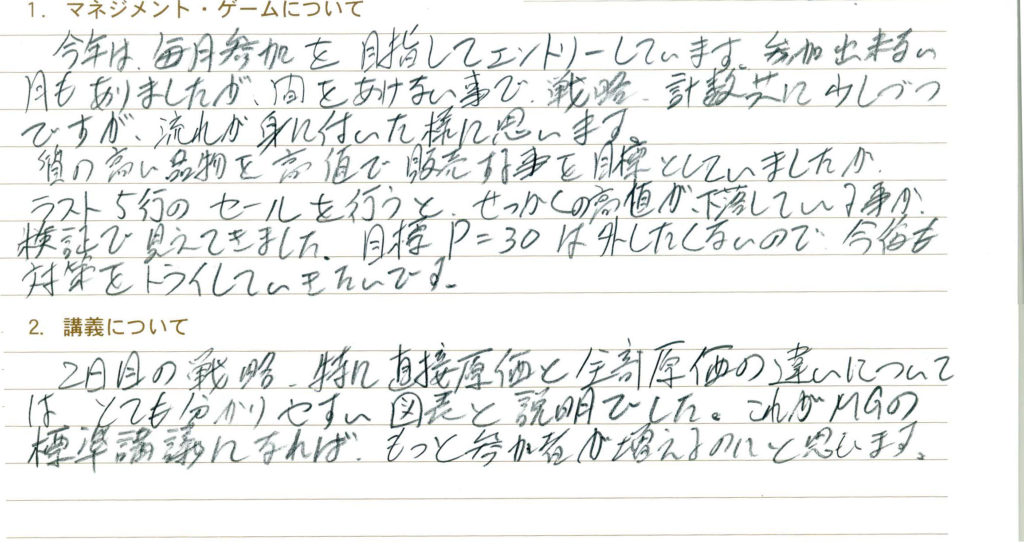 1. マネジメント・ゲームについて
今年は、毎月参加を目指してエントリーしています。参加出来ない
月もありましたが、間をあけない事で、戦略、計数共に少しづつ
ですが、流れが身に付いた様に思います。
質の高い品物を高値で販売する事を目標としていましたが、
ラスト5行のセールを行うと、せっかくの高値が、下落している事が、
検証で見えてきました。目標P=30は外したくないので、今後も
対策をトライしていきたいです。
2. 講義について
2日目の戦略、特に直接原価と全部原価の違いについて
は、とても分かりやすい図表と説明でした。これがMGの
標準講義になれば、もっと参加者が増えるのにと思います。